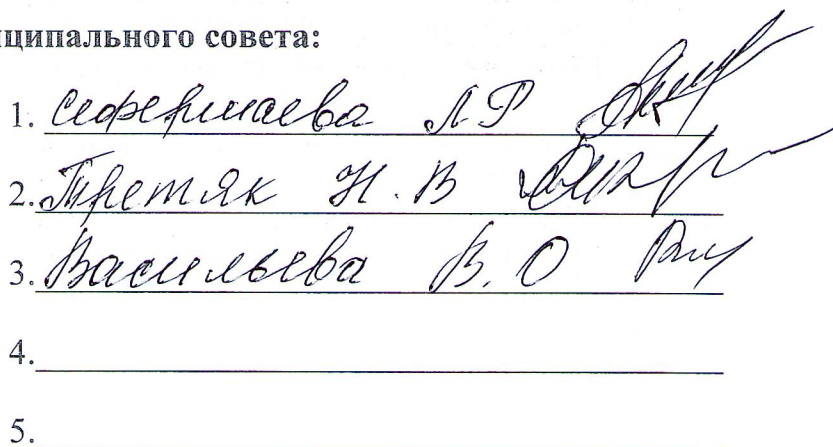 ципального совета:
1. Сефершаева Л Р
2. Третяк Н. В
3. Васильева В. О
4.
5.